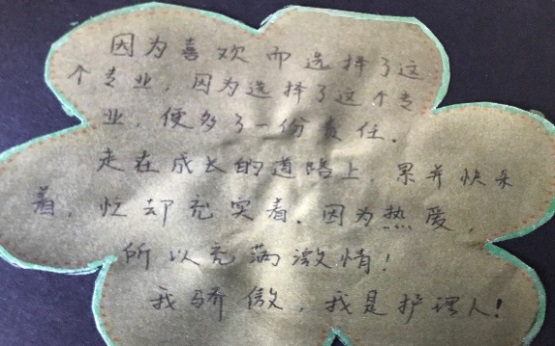 因为喜欢而选择了这
个专业，因为选择了这个专
业，便多了一份责任．
走在成长的道路上，累并快乐
着，忙却充实着．因为热爱，
所以充满激情！
我骄傲，我是护理人！